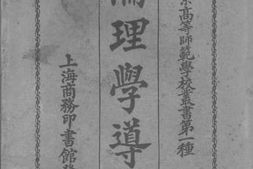 京高等師範學校叢書第一種
倫理學導
上海商務印書館發